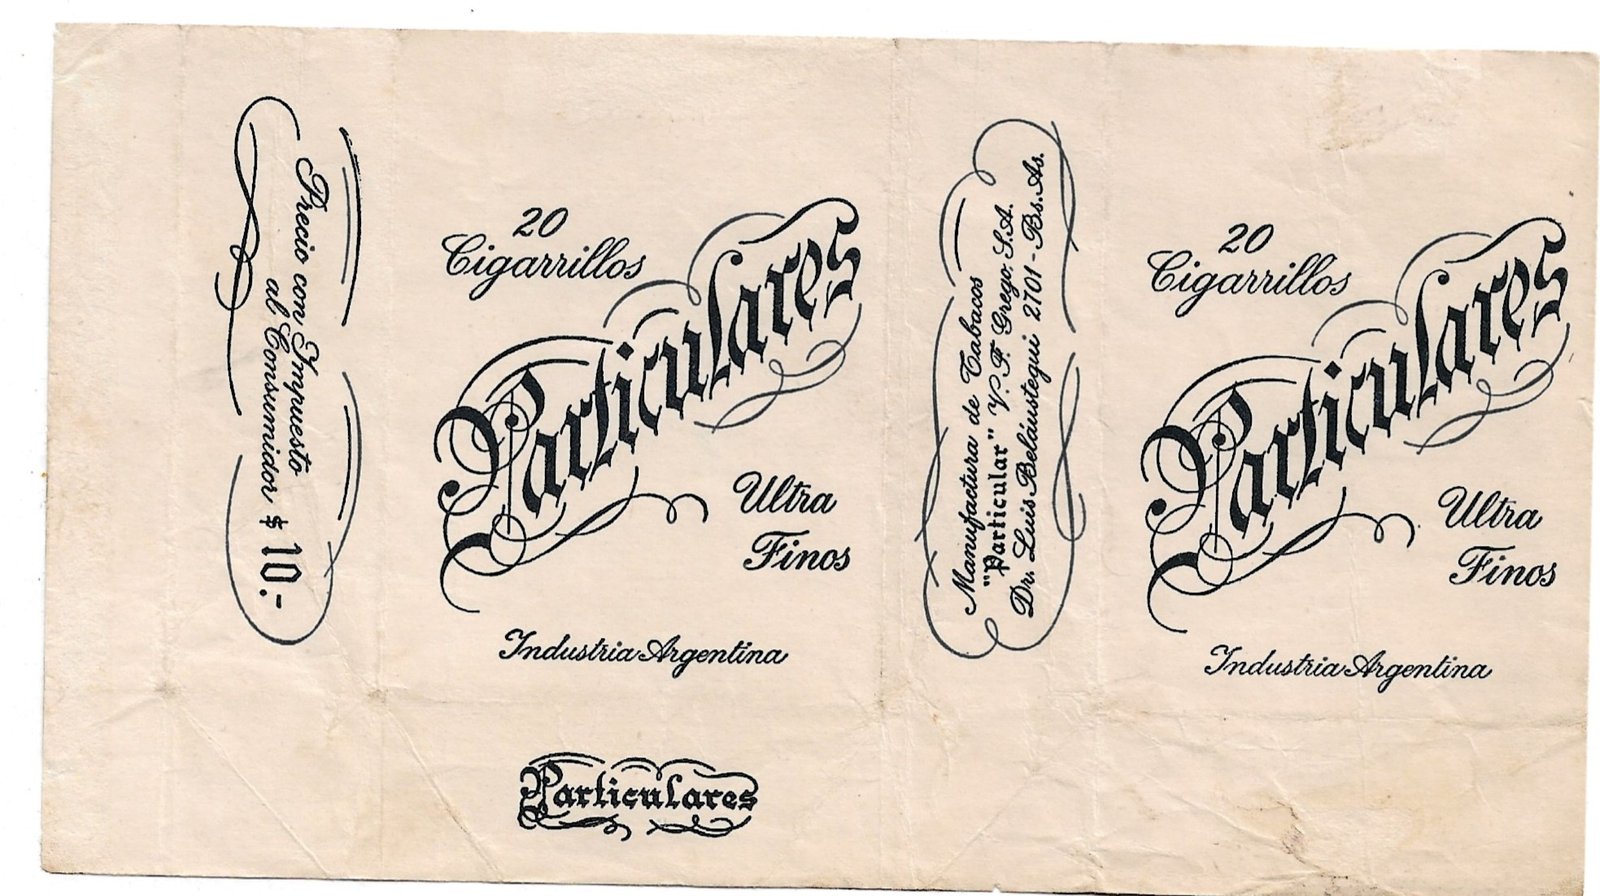 Precio con Impuesto
al Consumidor $ 10.-
20
Cigarrillos
Particulares
Ultra
Finos
Industria Argentina
Particulares
Manufactura de Tabacos
"Particular" V. F. Grego, S.A.
Dr. Luis Beláustegui 2701 - Bs. As.
20
Cigarrillos
Particulares
Ultra
Finos
Industria Argentina